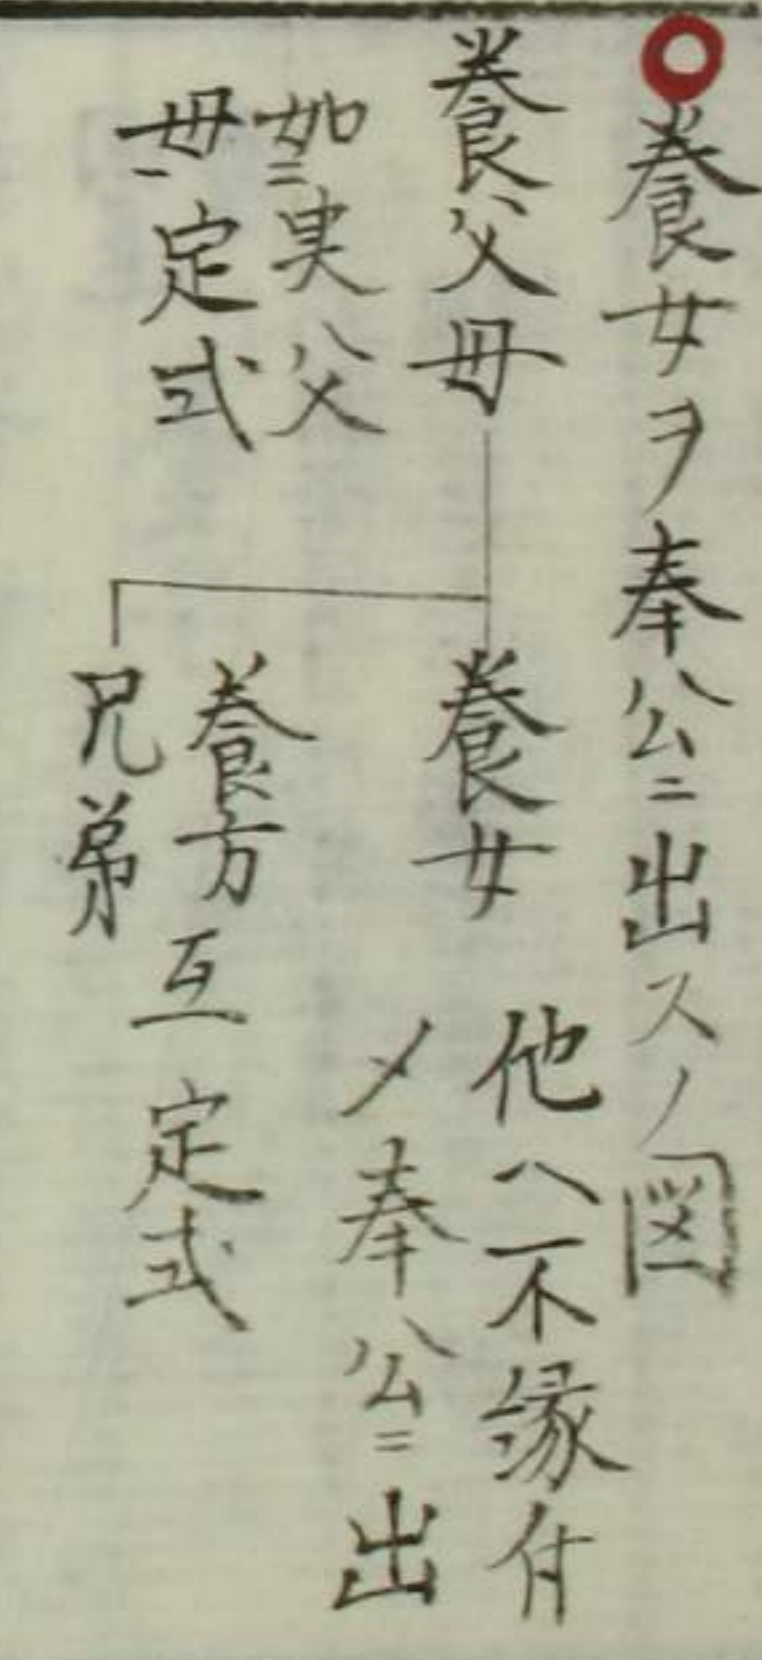 養女ヲ奉公ニ出スノ図
養父母
如㆓実父
母㆒定式
養女
他ヘ不縁付
〆奉公ニ出
養方
兄弟
互定式